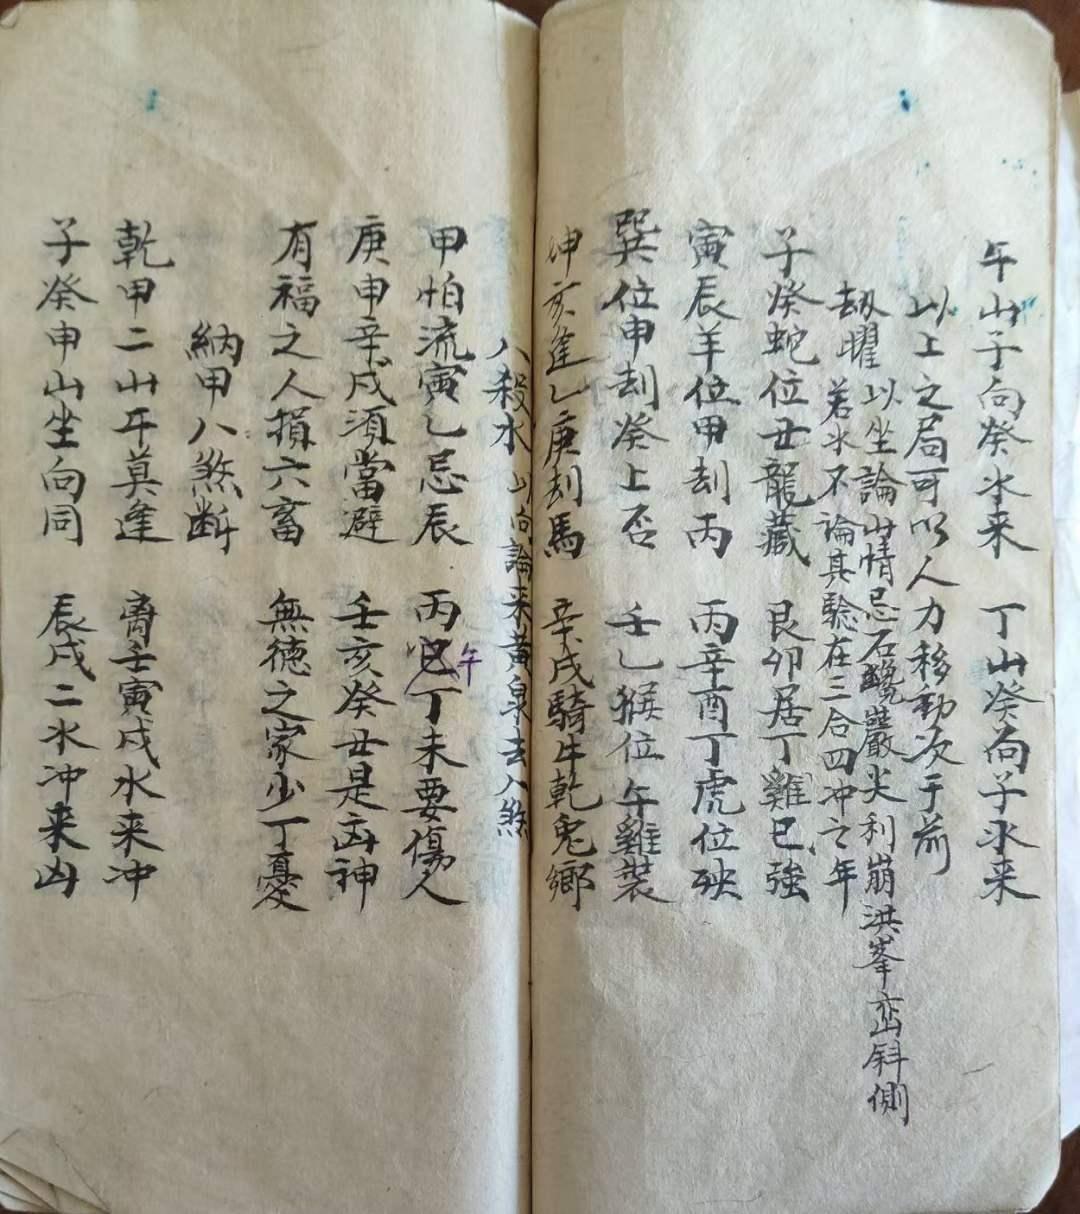 午山子向癸水来 丁山癸向子水来
以上之局可以人力移動次于前
刼曜 以坐論山情忌石巉巖尖利崩洪峯巒斜側
若水不論其驗在三合四冲之年
子癸蛇位丑龍藏 艮卯居丁雞巳強
寅辰羊位甲刦丙 丙辛酉丁虎位殃
巽位申刦癸上否 壬乙猴位午雞裝
坤亥逢乙庚刦馬 辛戌騎牛乾兔鄉
八殺水 山向論来黄泉去八煞
甲怕流寅乙忌辰 丙巳午丁未要傷人
庚申辛戌須當避 壬亥癸丑是凶神
有福之人損六畜 無德之家少丁憂
納甲八煞断
乾甲二山午莫逢 离壬寅戌水来冲
子癸申山坐向同 辰戌二水冲来凶